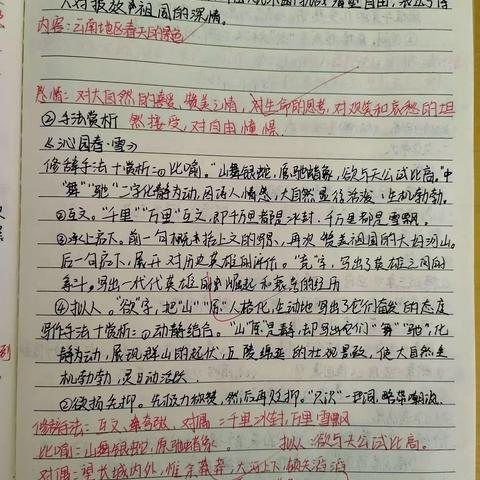 大对投放祖国的深情。
内容:云南地区春天的景色
感情:对大自然的喜爱,赞美之情,对生命的思考,对欢笑和哀愁的坦
②手法赏析 然接受,对自由憧憬
《沁园春·雪》
修辞手法+赏析:①比喻。“山舞银蛇,原驰蜡象,欲与天公试比高。”中
“舞”“驰”二字化静为动,因诗人情怀,大自然显得活泼,生机勃勃。
②互文。“千里”“万里”互文,即千万里都是冰封,千万里都是雪飘。
③承上启下。前一句概括上文的写景,再次赞美祖国的大好河山。
后一句启下,展开对历史英雄的评价。“竞”字,写出了英雄之间的
争斗。写出一代代英雄的崛起和衰亡的经历
④拟人。“欲”字,把“山”“原”人格化,生动地写出了它们奋发的态度
写作手法+赏析:①动静结合。“山”“原”是静,却写出它们“舞”“驰”,化
静为动,展现群山的起伏,丘陵绵亘的壮观景致,使大自然生
机勃勃,灵动活跃.
②欲扬先抑。先极力放赞,然后再贬抑。“只识”一词,略带嘲讽.
修辞手法:互文、夸张、对偶:千里冰封,万里雪飘
比喻:山舞银蛇,原驰蜡象。 拟人:欲与天公试比高。
对偶:望长城内外,惟余莽莽;大河上下,顿失滔滔